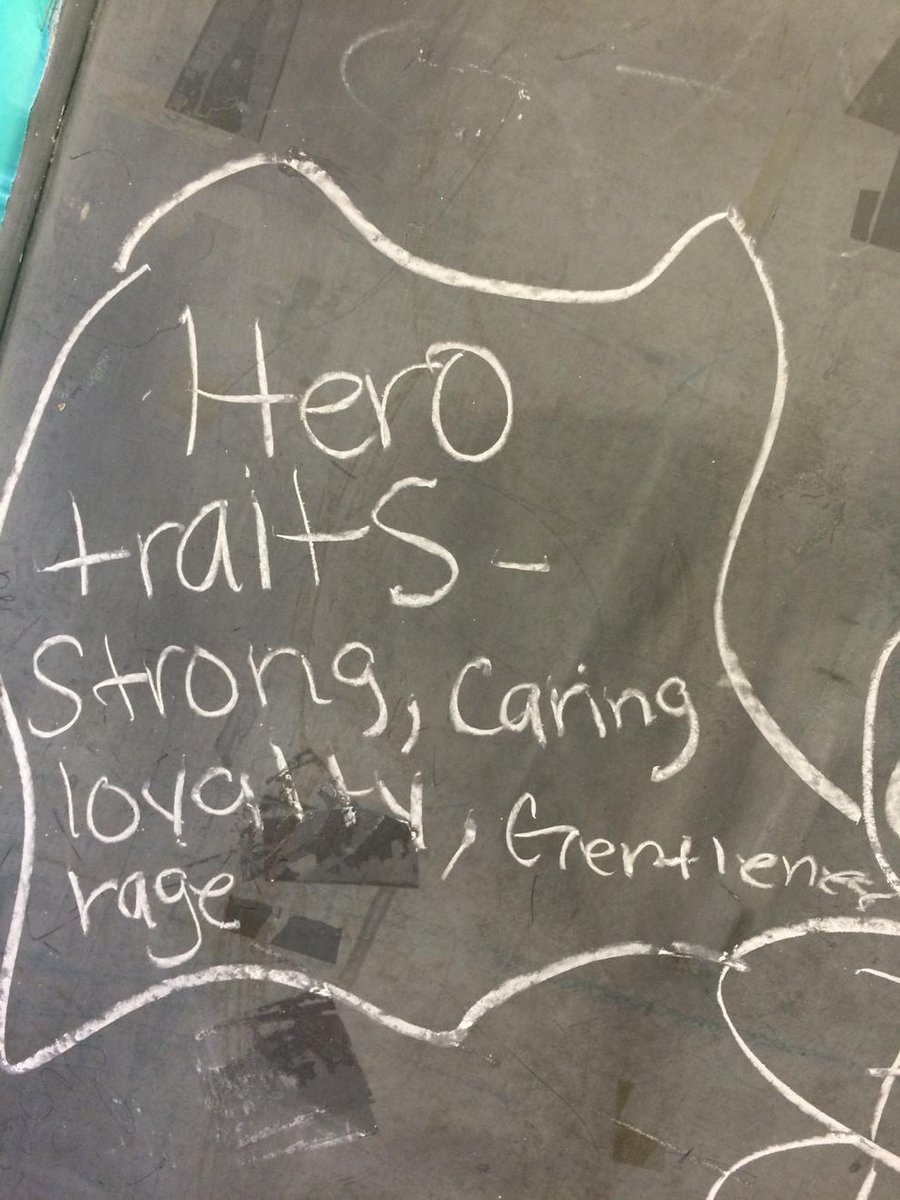 Hero
traits -
Strong, Caring
loyalty, Gentleness
rage